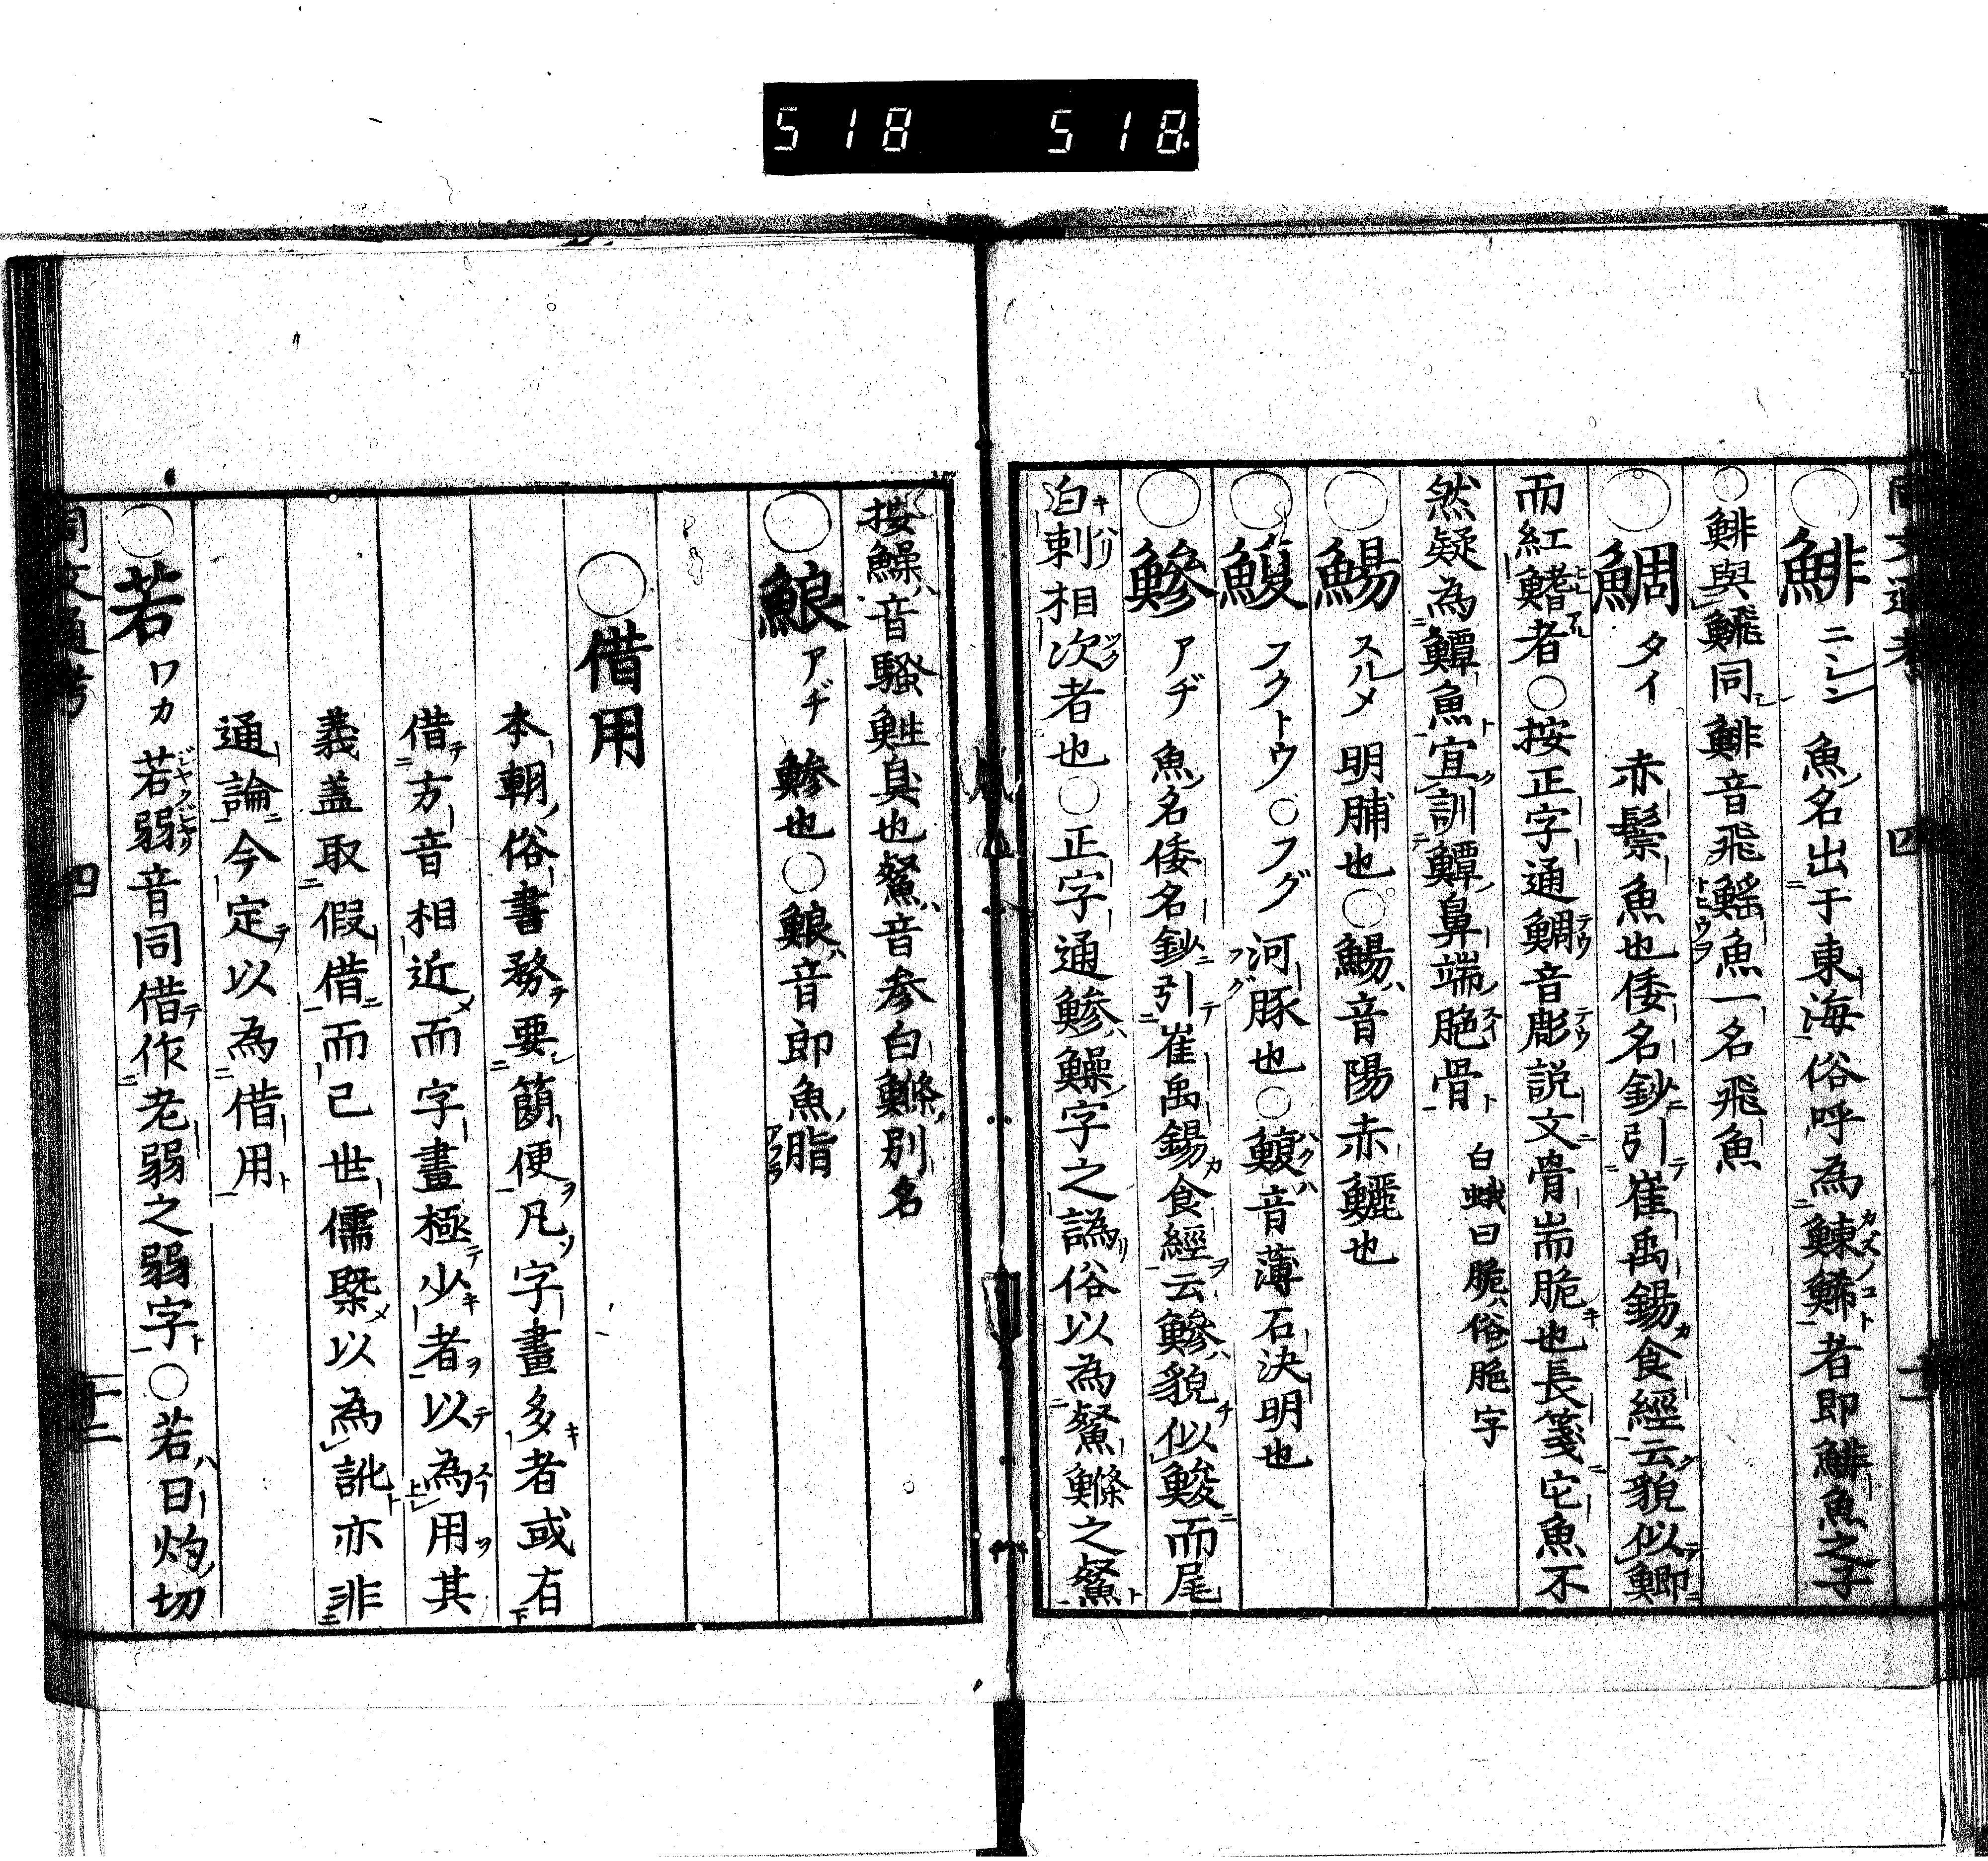 518 518
○鯡 ニシン 魚名出于東海俗呼為鯟鯑者即鯡魚之子
○鯡與𩹉同鯡音飛鰩魚一名飛魚
○鯛 タイ 赤鬃魚也倭名鈔引崔禹錫食經云貌似鯽
而紅鰭者○按正字通鯛音彫説文骨耑脆也長箋它魚不
然疑為鱏魚宜訓鱏鼻端脃骨 白蛾曰脆俗脃字
○鰑 スルメ 明脯也○鰑音陽赤鱺也
○鰒 フクトウ○フグ 河豚也○鰒音薄石決明也
○鰺 アヂ 魚名倭名鈔引崔禹錫食經云鰺貌似鯼而尾
白刺相次者也○正字通鰺鱢字之譌俗以為鮝鰷之鮝
按鱢音騷鮏臭也鮝音參白鰷別名
○鯓 アヂ 鰺也○鯓音即魚脂
○借用
本朝俗書務要簡便凡字畫多者或有
借方音相近而字畫極少者以為用其
義盖取假借而已世儒槩以為訛亦非
通論今定以為借用
○若 ワカ 若弱音同借作老弱之弱字○若日灼切
同文通考 四 十二